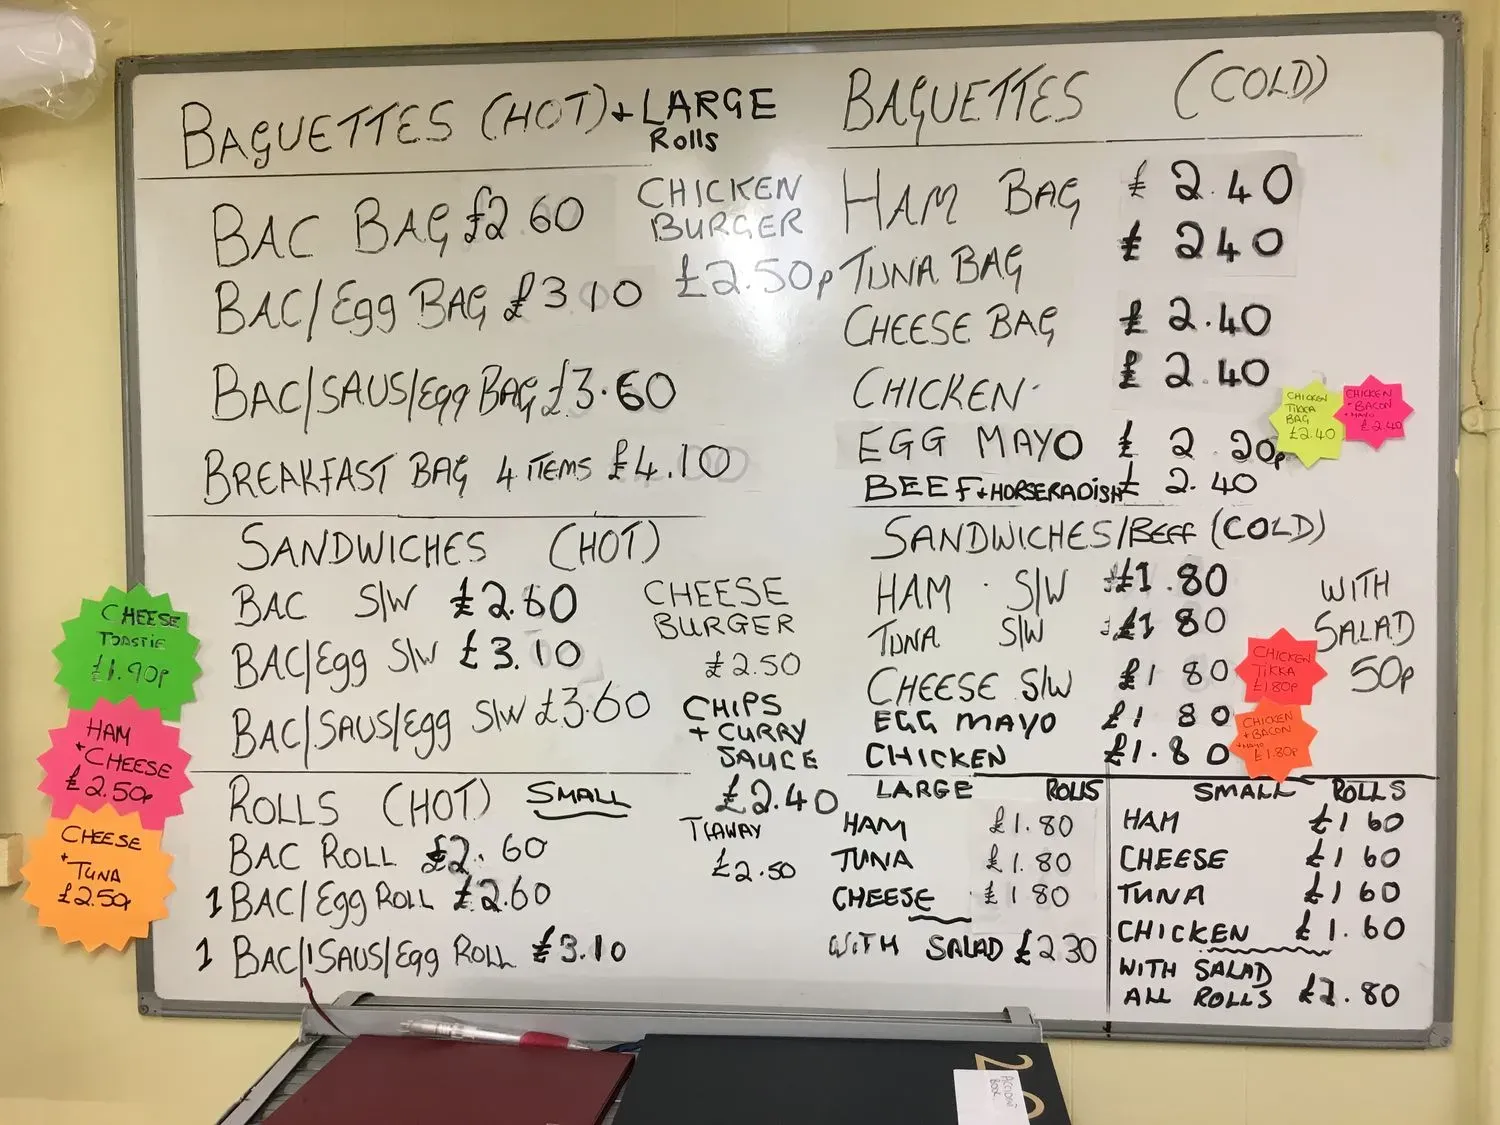 BAGUETTES (HOT) + LARGE
Rolls
BAC BAG £2.60
BAC/Egg BAG £3.10
BAC/SAUS/Egg BAG £3.60
BREAKFAST BAG 4 ITEMS £4.10
CHICKEN
BURGER
£2.50p
SANDWICHES (HOT)
BAC S/W £2.60
BAC/Egg S/W £3.10
BAC/SAUS/Egg S/W £3.60
CHEESE
BURGER
£2.50
CHIPS
+ CURRY
SAUCE
£2.40
T/AWAY
£2.50
ROLLS (HOT) SMALL
BAC ROLL £2.60
1 BAC/Egg ROLL £2.60
1 BAC/1SAUS/Egg ROLL £3.10
CHEESE
TOASTIE
£1.90p
HAM
+ CHEESE
£2.50p
CHEESE
+ TUNA
£2.50p
BAGUETTES (COLD)
HAM BAG £2.40
TUNA BAG £2 40
CHEESE BAG £2.40
CHICKEN £2.40
EGG MAYO £2 20p
BEEF + HORSERADISH £2.40
CHICKEN
TIKKA
BAG
£2.40
CHICKEN
+ BACON
+ MAYO
£2.40
SANDWICHES/BEEF (COLD)
HAM S/W £1.80
TUNA S/W £1 80
CHEESE S/W £1 80
EGG MAYO £1 80
CHICKEN £1.80
CHICKEN
TIKKA
£1.80p
CHICKEN
+ BACON
+ MAYO
£1.80p
WITH
SALAD
50p
LARGE ROLLS
HAM £1.80
TUNA £1.80
CHEESE £1 80
WITH SALAD £2 30
SMALL ROLLS
HAM £1 60
CHEESE £1 60
TUNA £1 60
CHICKEN £1.60
WITH SALAD
ALL ROLLS £1.80
ACCIDENT
BOOK